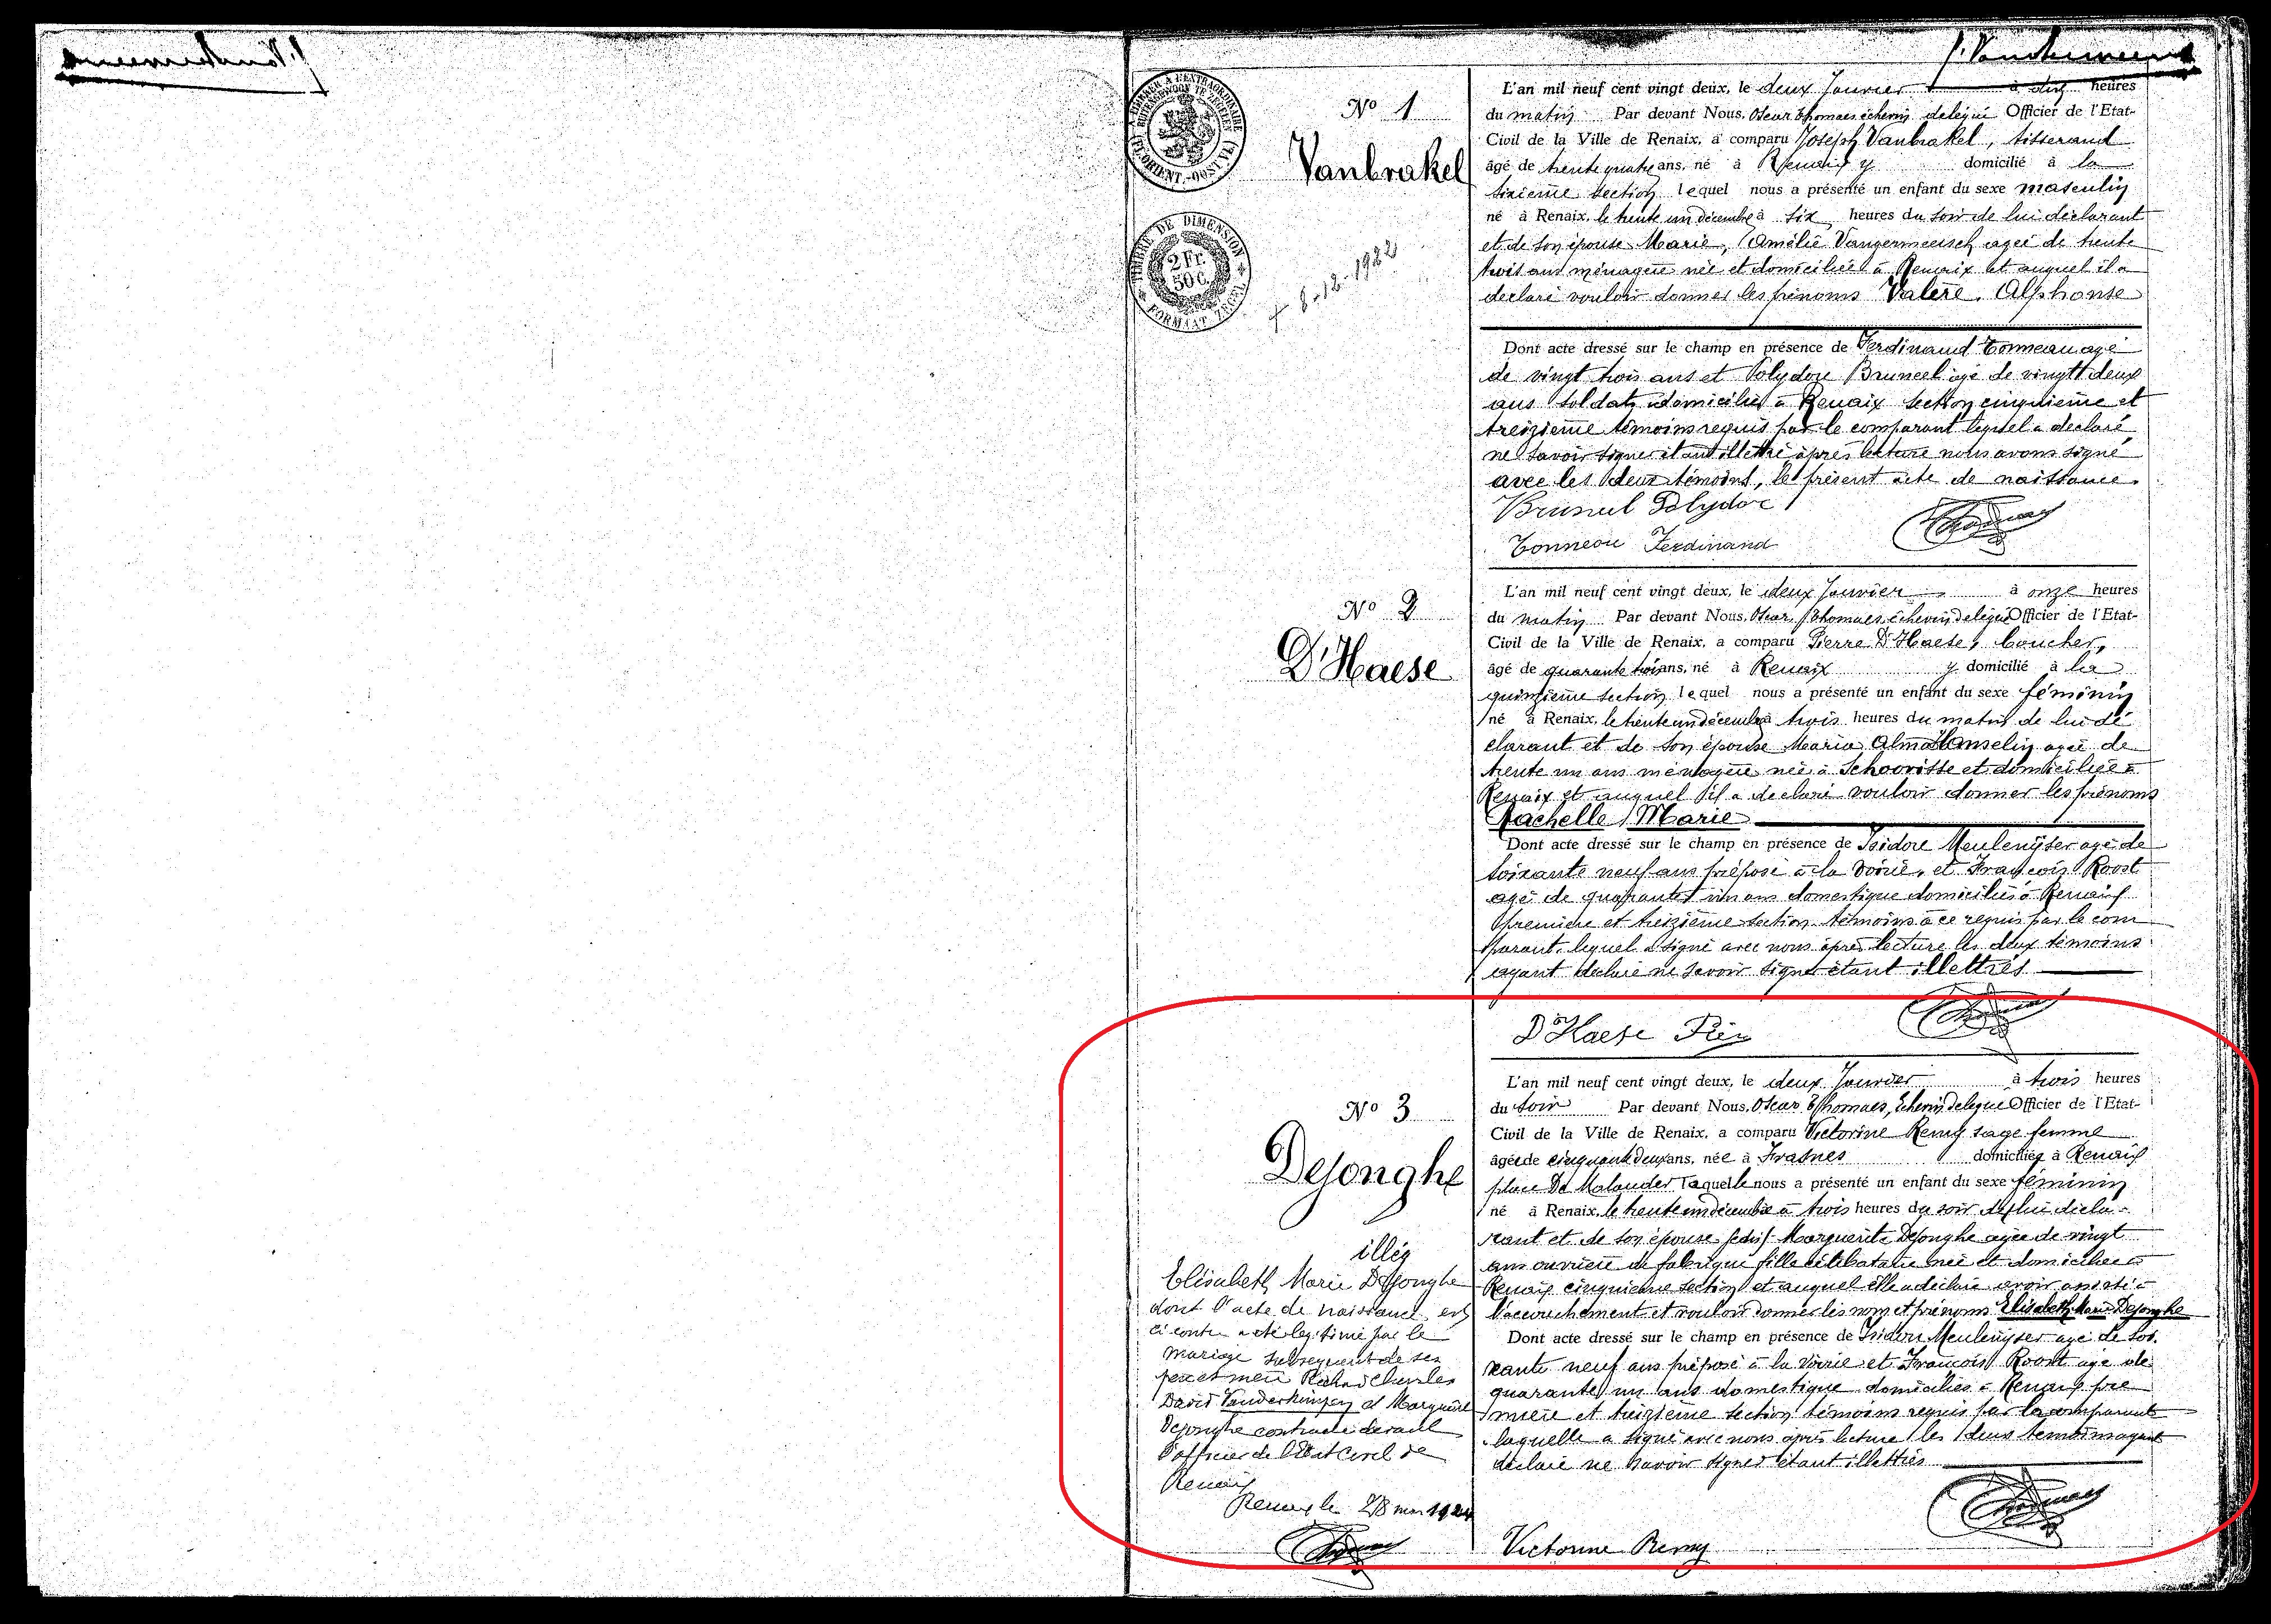 J. Vandermeersch
Nº 1
Vanbrakel
8-12-1922
L'an mil neuf cent vingt deux, le deux Janvier à dix heures
du matin Par devant Nous, Oscar Thomaes échevin délégué Officier de l'Etat-
Civil de la Ville de Renaix, a comparu Joseph Vanbrakel, tisserand
âgé de trente quatre ans, né à Renaix y domicilié à la
sixième section lequel nous a présenté un enfant du sexe masculin
né à Renaix, le trente un décembre à six heures du soir de lui déclarant
et de son épouse Marie, Amélie Vangermeersch agée de trente
trois ans ménagère née et domiciliée à Renaix et auquel il a
declaré vouloir donner les prénoms Valère, Alphonse
Dont acte dressé sur le champ en présence de Ferdinand Tonneau agé
de vingt trois ans et Polydore Bruneel agé de vingt deux
ans soldats domiciliés à Renaix section cinquième et
treizième témoins requis par le comparant lequel a declaré
ne savoir signer étant illettré après lecture nous avons signé
avec les deux témoins, le présent acte de naissance.
Bruneel Polydor
Tonneau Ferdinand
Nº 2
D'Haese
L'an mil neuf cent vingt deux, le deux Janvier à onze heures
du matin Par devant Nous, Oscar Thomaes, échevin délégué Officier de l'Etat-
Civil de la Ville de Renaix, a comparu Pierre D'Haese, boucher,
âgé de quarante trois ans, né à Renaix y domicilié à la
quinzième section lequel nous a présenté un enfant du sexe féminin
né à Renaix, le trente un décembre à trois heures du matin de lui dé
clarant et de son épouse Maria Alma Hanselin agée de
trente un ans ménagère née à Schoorisse et domiciliée à
Renaix et auquel il a declaré vouloir donner les prénoms
Rachelle Marie
Dont acte dressé sur le champ en présence de Isidore Meulenyser agé de
soixante neuf ans préposé à la voirie, et François Roost
agé de quarante un ans domestique domiciliés à Renaix
première et treizième section témoins à ce requis par le com
parant lequel a signé avec nous après lecture les deux témoins
ayant declaré ne savoir signer étant illettrés
D'Haese Pier
Nº 3
Dejonghe
illég
Elisabeth Marie Dejonghe
dont l'acte de naissance est
ci contre a été légitimé par le
mariage subsequent de ses
père et mère Richard Charles
David Vanderhingen et Marguerite
Dejonghe contracté devant
l'officier de l'Etat Civil de
Renaix
Renaix le 28 mai 1924
L'an mil neuf cent vingt deux, le deux Janvier à trois heures
du soir Par devant Nous, Oscar Thomaes, Echevin délégué Officier de l'Etat-
Civil de la Ville de Renaix, a comparu Victorine Remy sage femme
âgée de cinquante deux ans, née à Frasnes domiciliée à Renaix
place De Malander laquelle nous a présenté un enfant du sexe féminin
né à Renaix, le trente un décembre à trois heures du soir de lui décla-
rant et de son épouse Marguerite Dejonghe agée de vingt
ans ouvrière de fabrique fille célibataire née et domiciliée à
Renaix cinquième section et auquel elle a déclaré avoir assisté à
l'accouchement et vouloir donner les nom et prénoms Elisabeth Marie Dejonghe
Dont acte dressé sur le champ en présence de Isidore Meulenyser agé de soi
xante neuf ans préposé à la voirie et François Roost agé de
quarante un ans domestique domiciliés à Renaix pre
mière et treizième section témoins requis par la comparante
laquelle a signé avec nous après lecture les deux témoins ayant
déclaré ne savoir signer étant illettrés
Victorine Remy
TIMBRE DE DIMENSION
2 Fr.
50 C.
FORMAAT ZEGEL